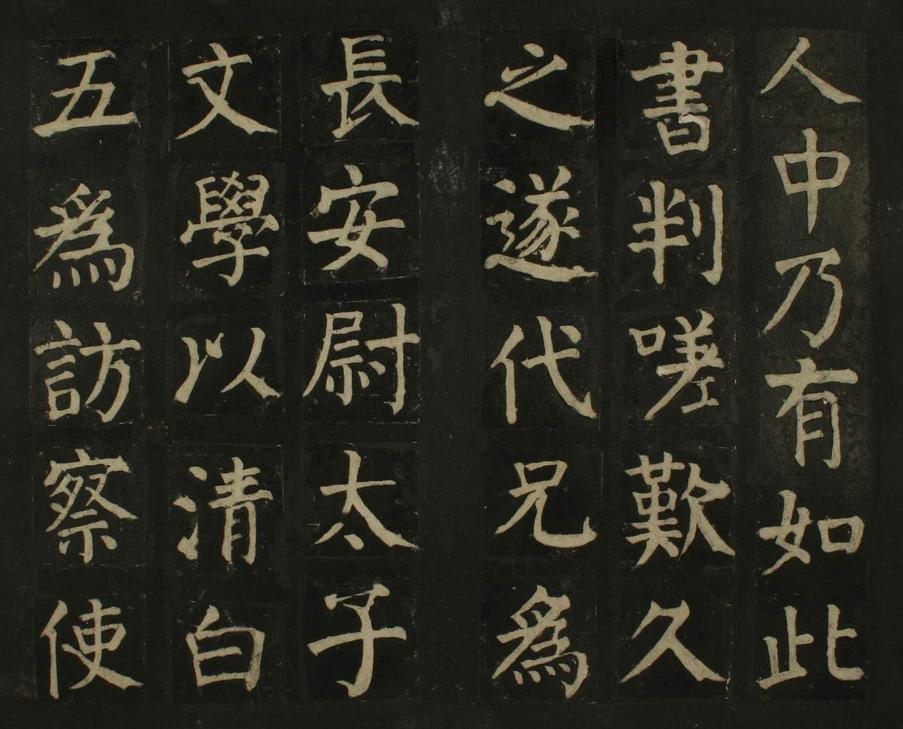 人中乃有如此
書判嗟歎久
之遂代兄為
長安尉太子
文學以清白
五為訪察使